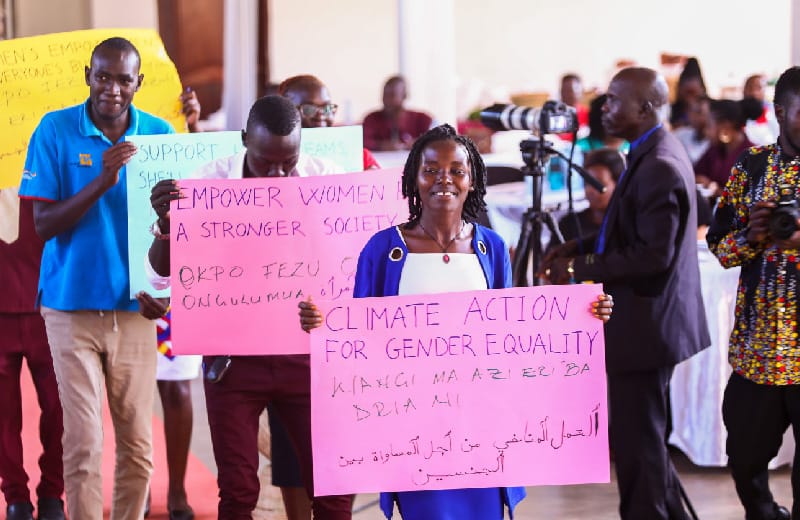 MEN'S EMPOW
EVERYONE'S B
SUPPORT
EAMS
EMPOWER WOMEN F
A STRONGER SOCIETY
OKPO FEZU
ONGULUMUA
CLIMATE ACTION
FOR GENDER EQUALITY
KIANGI MA AZI ERI'BA
DRIA NI
العمل المناخي من أجل المساواة بين
الجنسين